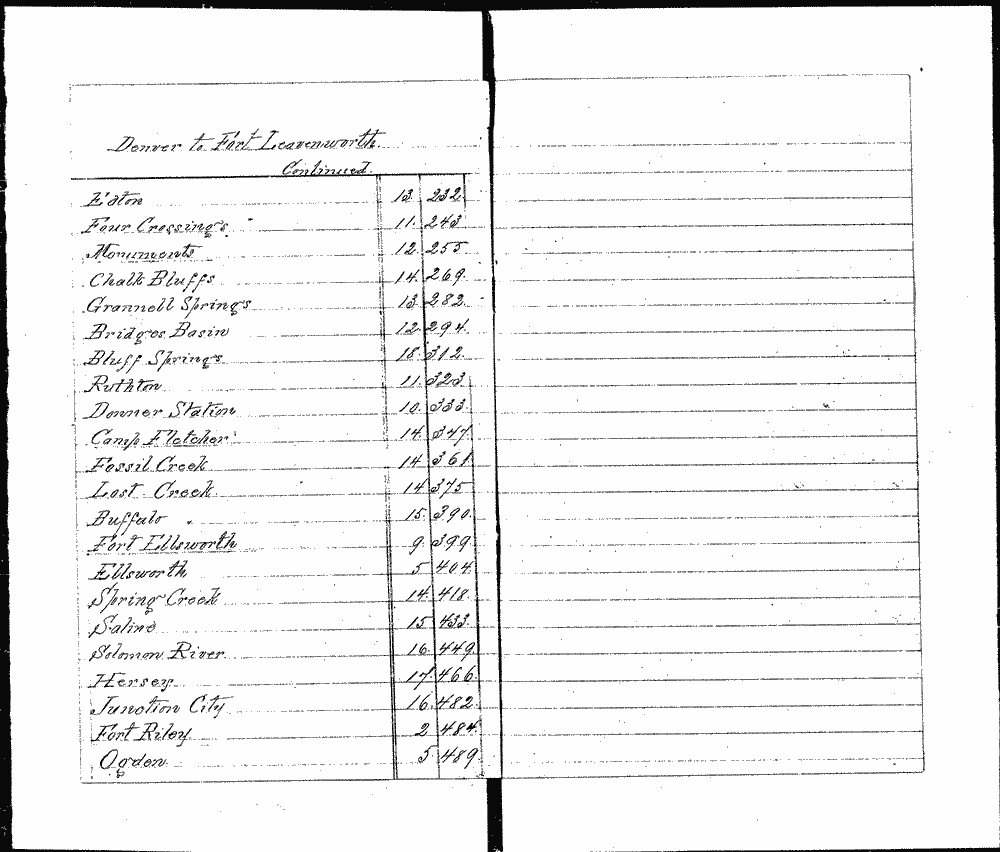 Denver to Fort Leavenworth.
Continued.
Eaton 13. 232.
Four Crossings. 11. 243
Monuments 12. 255
Chalk Bluffs 14. 269.
Grannell Springs 13 282.
Bridges Basin 12. 294.
Bluff Springs 18. 312.
Ruthton 11. 323.
Donner Station 10. 333.
Camp Fletcher 14. 347.
Fossil Creek 14 361
Lost Creek 14 375
Buffalo 15. 390.
Fort Ellsworth 9. 399.
Ellsworth 5 404.
Spring Creek 14. 418.
Saline 15 433.
Solomon River 16. 449.
Hersey 17. 466.
Junction City 16. 482.
Fort Riley 2 484.
Ogden 5. 489.